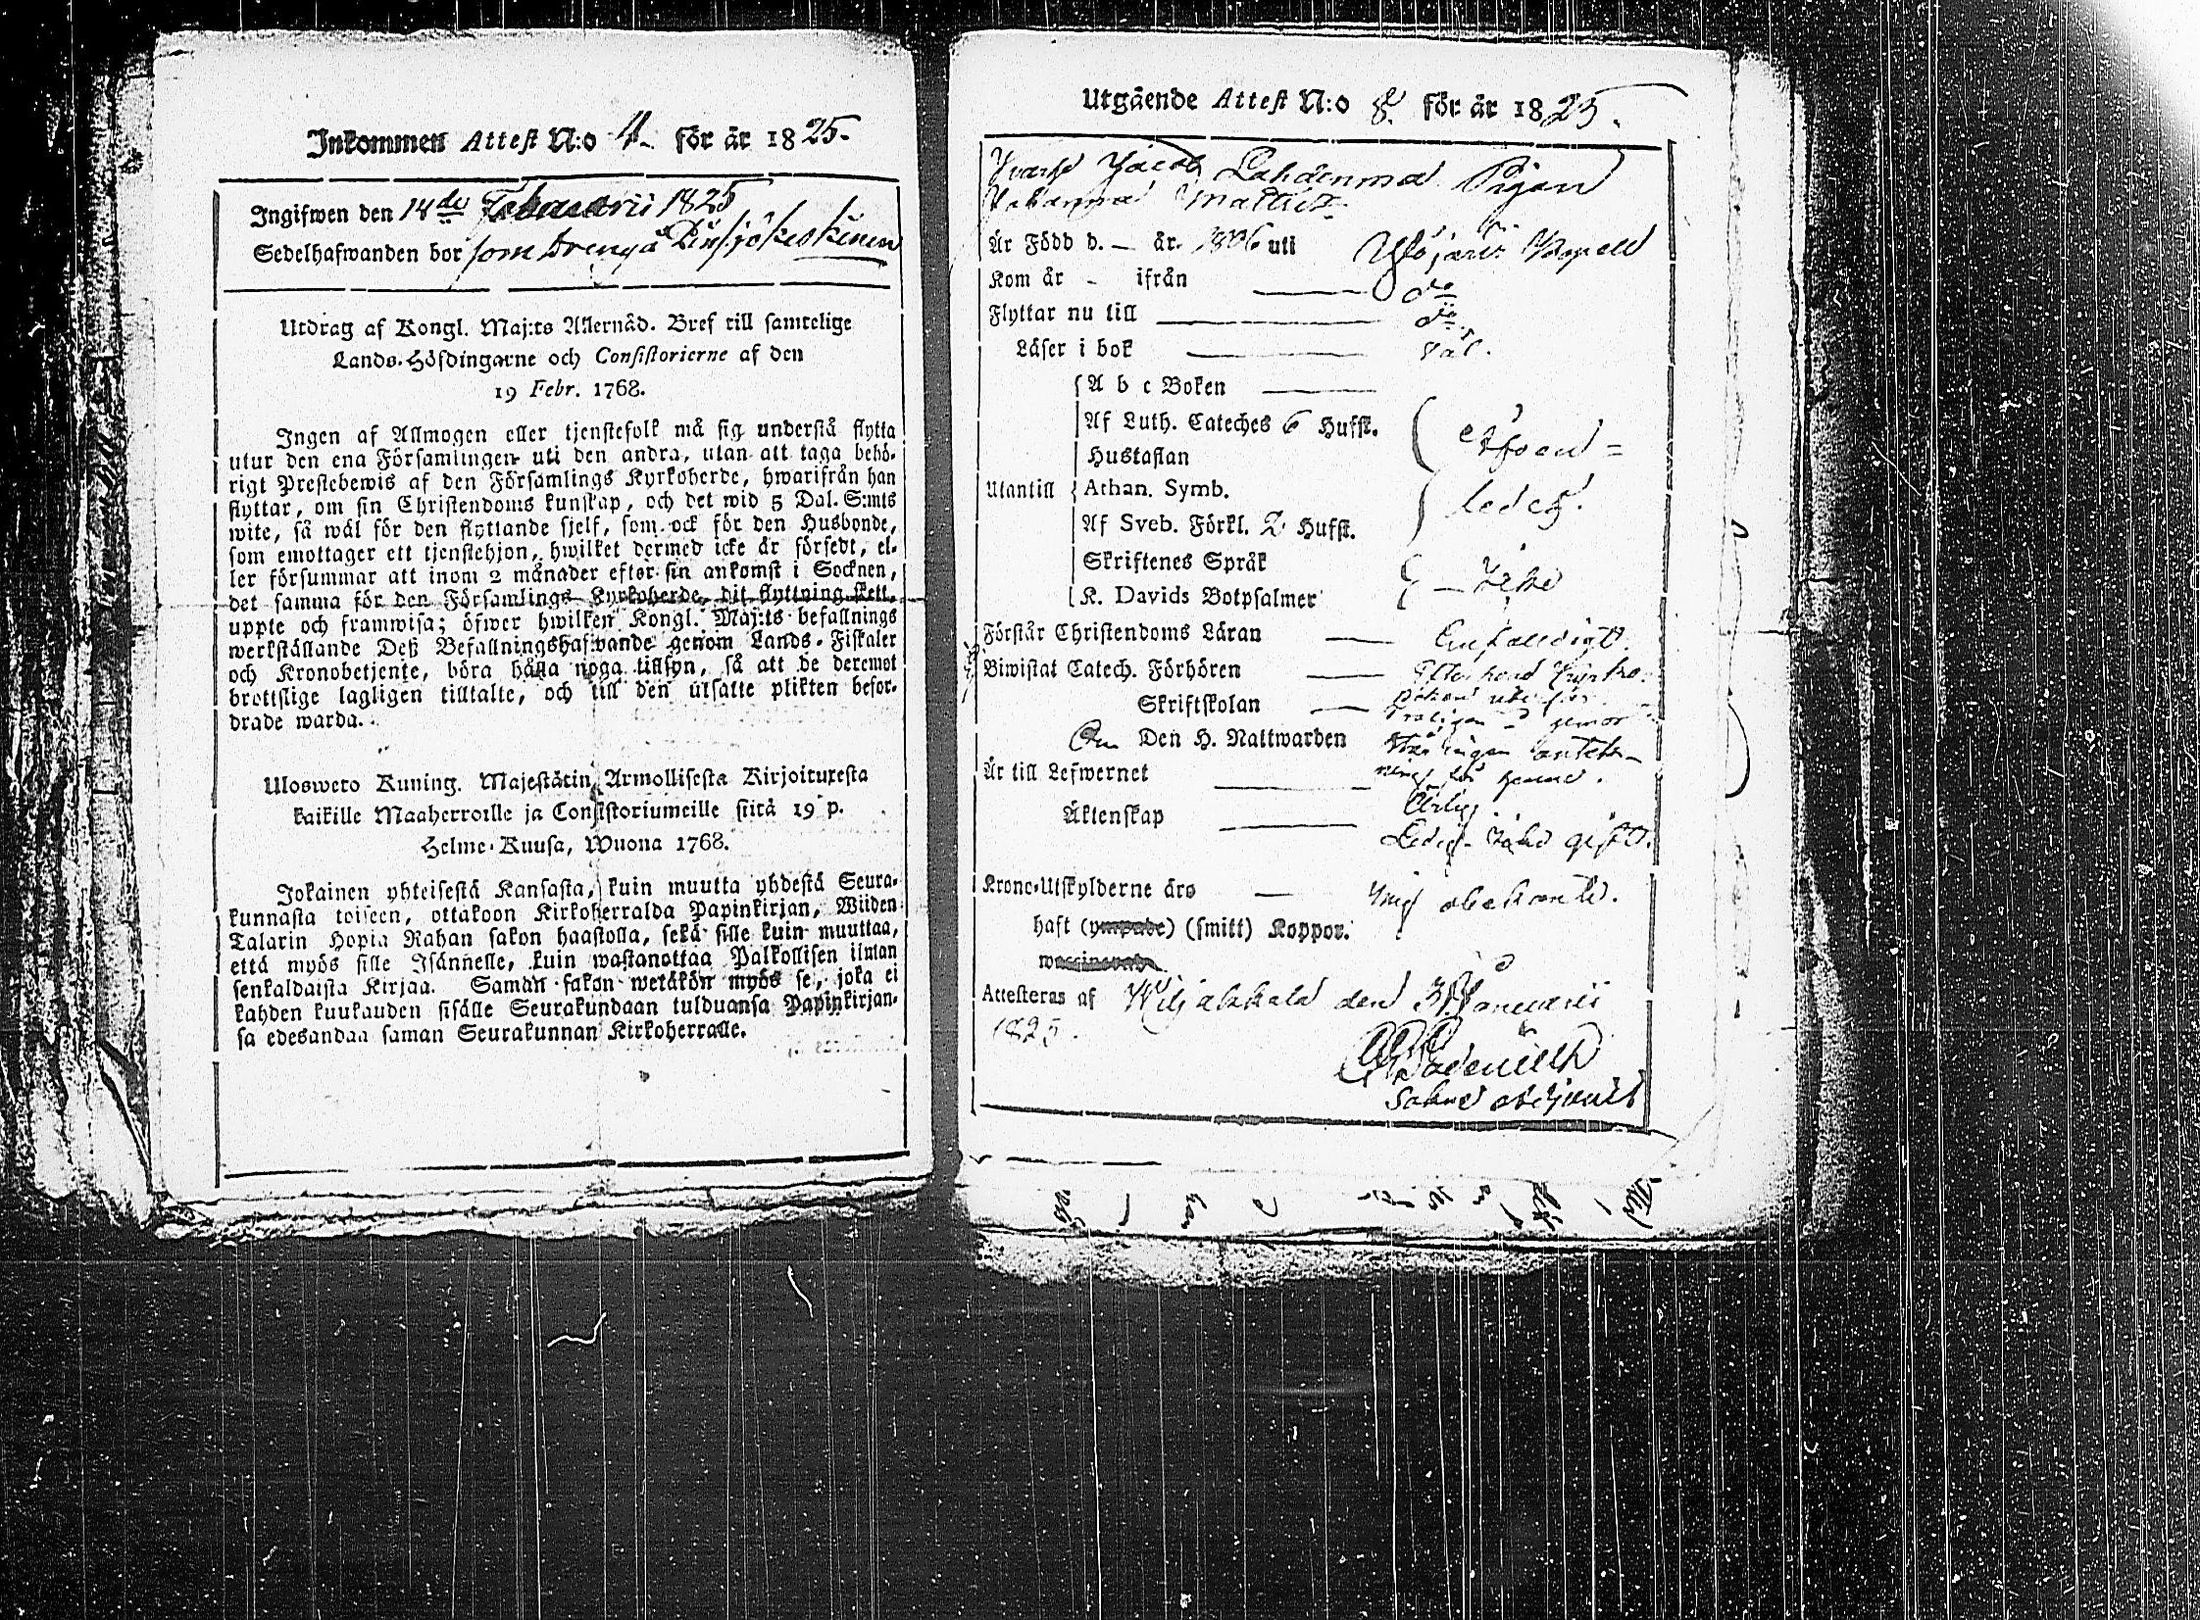 Inkommen Attest N:o 4. för år 1825.
Ingifwen den 14de Februarii 1825
Sedelhafwanden bor som Dreng å
Utdrag af Kongl. Maj:ts Allernåd. Bref till samtelige
Lands-Höfdingarne och Consistorierne af den
19 Febr. 1768.
Ingen af Allmogen eller tjenstefolk må sig understå flytta
utur den ena Församlingen uti den andra, utan att taga behö-
rigt Prestebewis af den Församlings Kyrkoherde, hwarifrån han
flyttar, om sin Christendoms kunskap, och det wid 5 Dal. S:mts
wite, så wäl för den flyttande sjelf, som ock för den Husbonde,
som emottager ett tjenstehjon, hwilket dermed icke är försedt, el-
ler försummar att inom 2 månader efter sin ankomst i Socknen,
det samma för den Församlings Kyrkoherde, dit flyttning skett,
uppte och framwisa; öfwer hwilken Kongl. Maj:ts befallnings
werkställande Deß Befallningshafwande genom Lands-Fiskaler
och Kronobetjente, böra hålla noga tillsyn, så att de deremot
brottslige lagligen tilltalte, och till den utsatte plikten befor-
drade warda.
Uloswero Kuning. Majestätin Armollisesta Kirjoituxesta
kaikille Maaherroille ja Consistoriumeille siitä 19 p.
Helme-Kuusa, Wuona 1768.
Jokainen yhteisestä Kansasta, kuin muutta yhdestä Seura-
kunnasta toiseen, ottakoon Kirkoherralda Papinkirjan, Wiiden
Talarin Hopia Rahan sakon haastolla, sekä sille kuin muuttaa,
että myös sille Isännelle, kuin wastanottaa Palkollisen ilman
senkaldaista Kirjaa. Saman sakon wetäkön myös se, joka ei
kahden kuukauden sisälle Seurakundaan tulduansa Papinkirjan-
sa edesandaa saman Seurakunnan Kirkoherralle.
Utgående Attest N:o 8. för år 1825.
Jacob Lahdenma Pigan
Johanna Mattsdr
Är Född d. — år 1806 uti Kapell
Kom år - ifrån — do
Flyttar nu till — do
Läser i bok — väl.
A b c Boken —
Af Luth. Cateches 6 Hufst.
Hustaflan
Utantill Athan. Symb.
Af Sveb. Förkl. 2 Hufst.
Skriftenes Språk
K. Davids Botpsalmer
Förstår Christendoms Läran — Enfaldigt.
Biwistat Catech. Förhören —
Skriftskolan —
Den H. Nattwarden
Är till Lefwernet — Ärlig
Äktenskap — Ledig gift.
Krono-Utskylderne äro — mig obekante.
haft (ympade) (smitt) Koppor.
Attesteras af Wiljakkala den Januarii
1825.